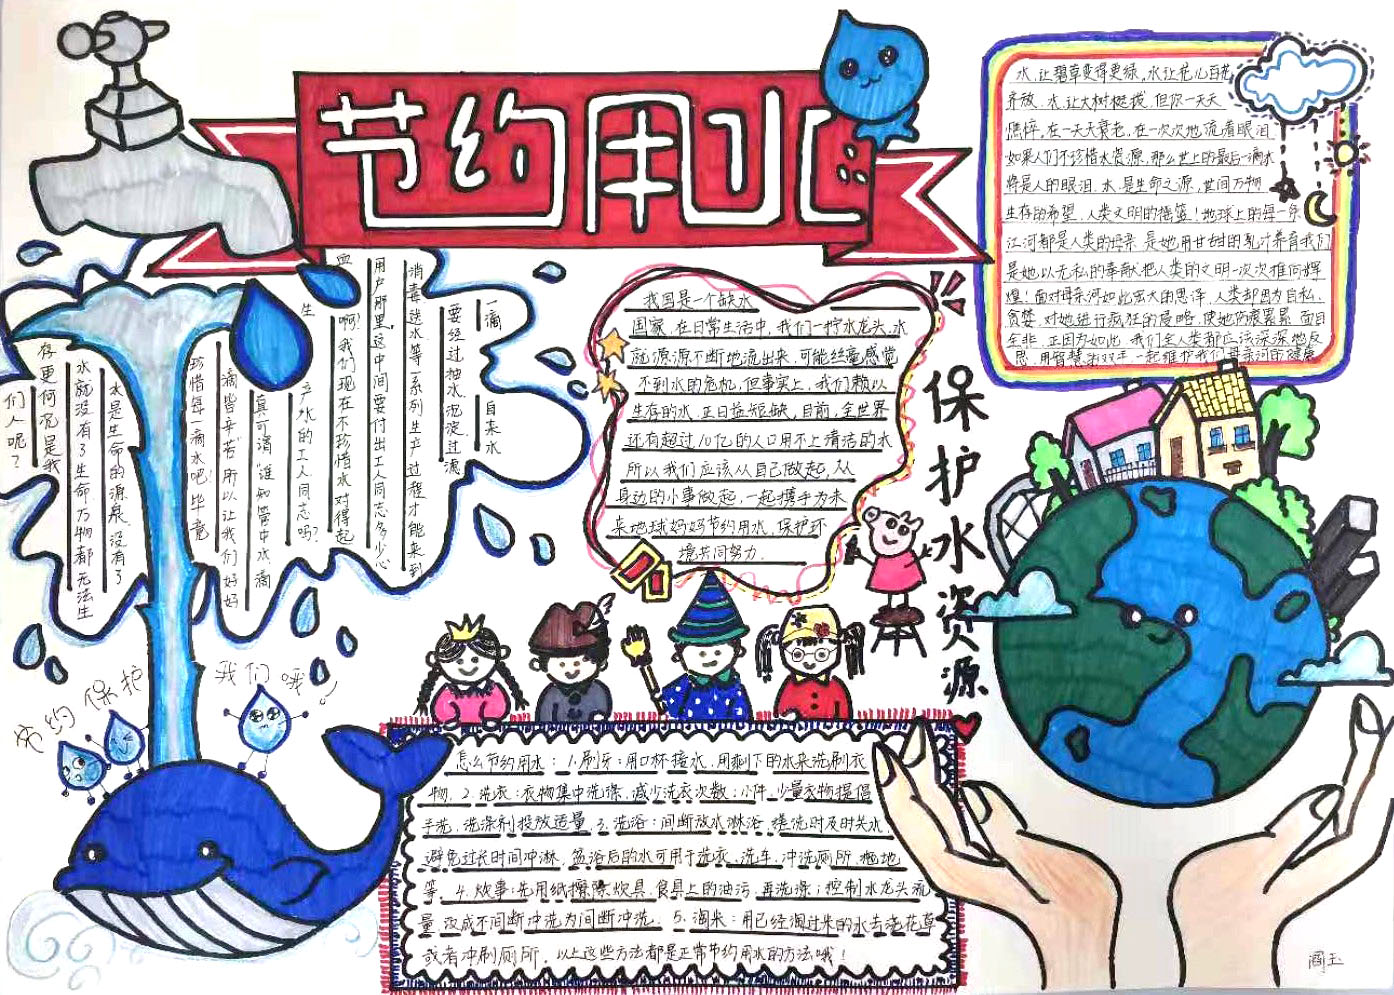 节约用水
一滴自来水
要经过抽水、沉淀、过滤
消毒送水等一系列生产过程才能来到
用户那里,这中间要付出工人同志多少心
血啊!我们现在不珍惜水对得起
生产水的工人同志吗?
真可谓“谁知管中水,滴
滴皆辛苦”所以让我们好好
珍惜每一滴水吧!毕竟
水是生命的源泉,没有了
水就没有了生命,万物都无法生
存更何况是我
们人呢?
我国是一个缺水
国家,在日常生活中,我们一拧水龙头,水
就源源不断地流出来,可能丝毫感觉
不到水的危机,但事实上,我们赖以
生存的水,正日益短缺,目前,全世界
还有超过10亿的人口用不上清洁的水
所以我们应该从自己做起,从
身边的小事做起,一起携手为未
来地球妈妈节约用水,保护环
境共同努力.
保护水资源
水,让碧草变得更绿,水让花儿百花
齐放,水,让大树挺拔,但你一天天
憔悴,在一天天衰老,在一次次地流着眼泪
如果人们不珍惜水资源,那么世上的最后一滴水
将是人的眼泪.水,是生命之源,世间万物
生存的希望,人类文明的摇篮!地球上的每一条
江河都是人类的母亲,是她用甘甜的乳汁养育我们
是她以无私的奉献把人类的文明一次次推向辉
煌!面对母亲河如此宏大的恩泽,人类却因为自私、
贪婪,对她进行疯狂的侵略,使她伤痕累累,面目
全非,正因为如此,我们全人类都应该深深地反
思,用智慧和双手,一起维护我们母亲河的健康
节约保护我们哦!
怎么节约用水:1.刷牙:用口杯接水,用剩下的水来洗刷衣
物.2.洗衣:衣物集中洗涤,减少洗衣次数;小件、少量衣物提倡
手洗,洗涤剂投放适量.3.洗浴:间断放水淋浴,搓洗时及时关水,
避免过长时间冲淋,盆浴后的水可用于洗衣、洗车、冲洗厕所、拖地
等.4.炊事:先用纸擦除炊具、食具上的油污,再洗涤;控制水龙头流
量,改成不间断冲洗为间断冲洗.5.淘米:用已经淘过米的水去浇花草
或者冲刷厕所.以上这些方法都是正常节约用水的方法哦!